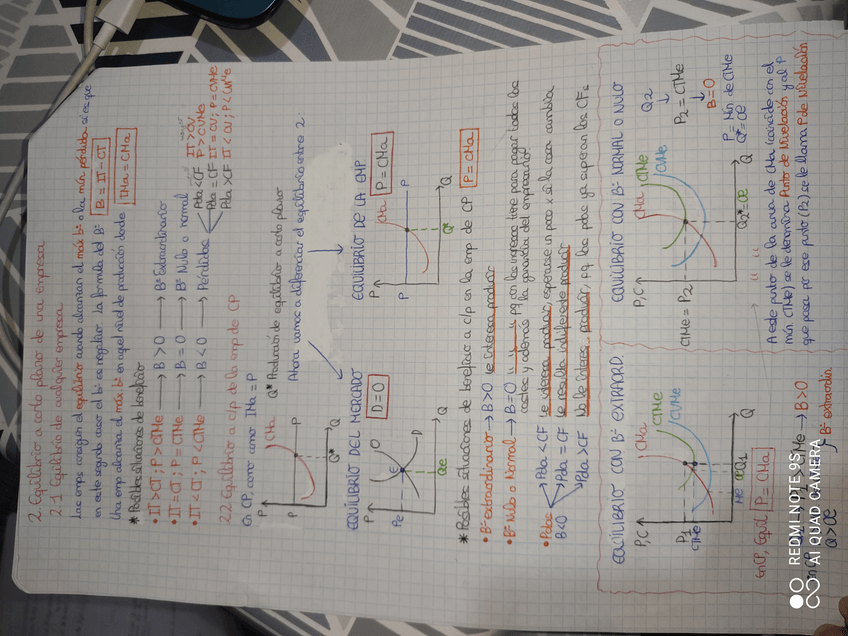 2. Equilibrio a corto plazo de una empresa
2.1 Equilibrio de cualquier empresa
Las emps consiguen el equilibrio cuando alcanzan el máx bº o la mín pérdida si es que
en este segundo caso el bº es negativo. La fórmula del Bº: B = IT - CT
Una emp alcanza el máx bº en aquel nivel de producción donde IMa = CMa
* Posibles situaciones de beneficio
• IT > CT ; P > CTMe → B > 0 → Bº Extraordinario
• IT = CT ; P = CTMe → B = 0 → Bº Nulo o normal
• IT < CT ; P < CTMe → B < 0 → Pérdidas
Pda < CF IT > CV P > CVMe
Pdas = CF IT = CV ; P = CVMe
Pdas > CF IT < CV ; P < CVMe
2.2 Equilibrio a c/p de la emp de CP
En CP, como IMa = P
P
CMa
P
Q*
Q
Q* Producción de equilibrio a corto plazo
Ahora vamos a diferenciar el equilibrio entre 2:
EQUILIBRIO DEL MERCADO
D = O
P
Pe
E
O
D
Qe
Q
EQUILIBRIO DE LA EMP
P = CMa
P
P
CMa
P
Q*
Q
* Posibles situaciones de beneficio a c/p en la emp de CP P = CMa
• Bº extraordinario → B > 0 le interesa producir
• Bº Nulo o Normal → B = 0 " " " pq con los ingresos tiene para pagar todos los
costes y además la garancia del empresario
• Pdas B < 0
Pdas < CF Le interesa producir, esperarse un poco x si la cosa cambia
Pdas = CF Le resulta indiferente producir
Pdas > CF No le interesa producir, pq las pdas ya superan los CFs
EQUILIBRIO CON Bº EXTRAORD.
P,C
CMa
CTMe
CVMe
P1
CTMe
Q1
Q
En CP, Equil P = CMa
> CTMe → B > 0
Bº extraordin
Q > OE
EQUILIBRIO CON Bº NORMAL O NULO
P,C
CMa
CTMe
CVMe
CTMe = P2
Q2* = OE
Q
Q2
P2 = CTMe
B = 0
P = Mín de CTMe
Q* = OE
" "
A este punto de la curva de CMa (coincide con el
mín CTMe) se le denomina Punto de Nivelación y al P
que pasa por ese punto (P2) se le llama P de Nivelación
REDMI NOTE 9S
AI QUAD CAMERA